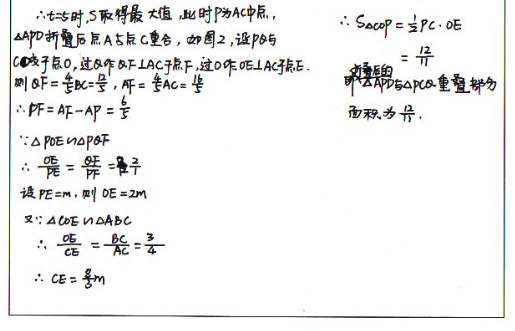 ∴t=5时,S取得最大值,此时P为AC中点,
△APD折叠后点A与点C重合,如图2,设PQ与
CD交于点O,过Q作QF⊥AC于点F,过O作OE⊥AC于点E.
则QF=4/5BC=12/5,AF=4/5AC=16/5
∴PF=AF-AP=6/5
∵△POE∽△PQF
∴OE/PE=QF/PF=2/1
设PE=m,则OE=2m
又∵△COE∽△ABC
∴OE/CE=BC/AC=3/4
∴CE=8/3m
∴S△COP=1/2PC·OE
=12/11
即折叠后的△APD与△PCQ重叠部分
面积为12/11.